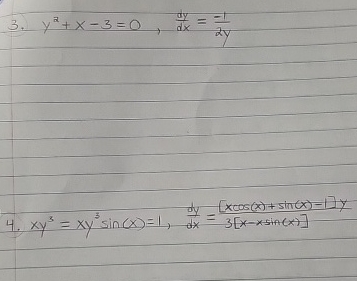 3. y² + x - 3 = 0 , dy/dx = -1/2y
4. xy³ = xy³ sin(x) = 1, dy/dx = [xcos(x) + sin(x) - 1]y / 3[x - x sin(x)]